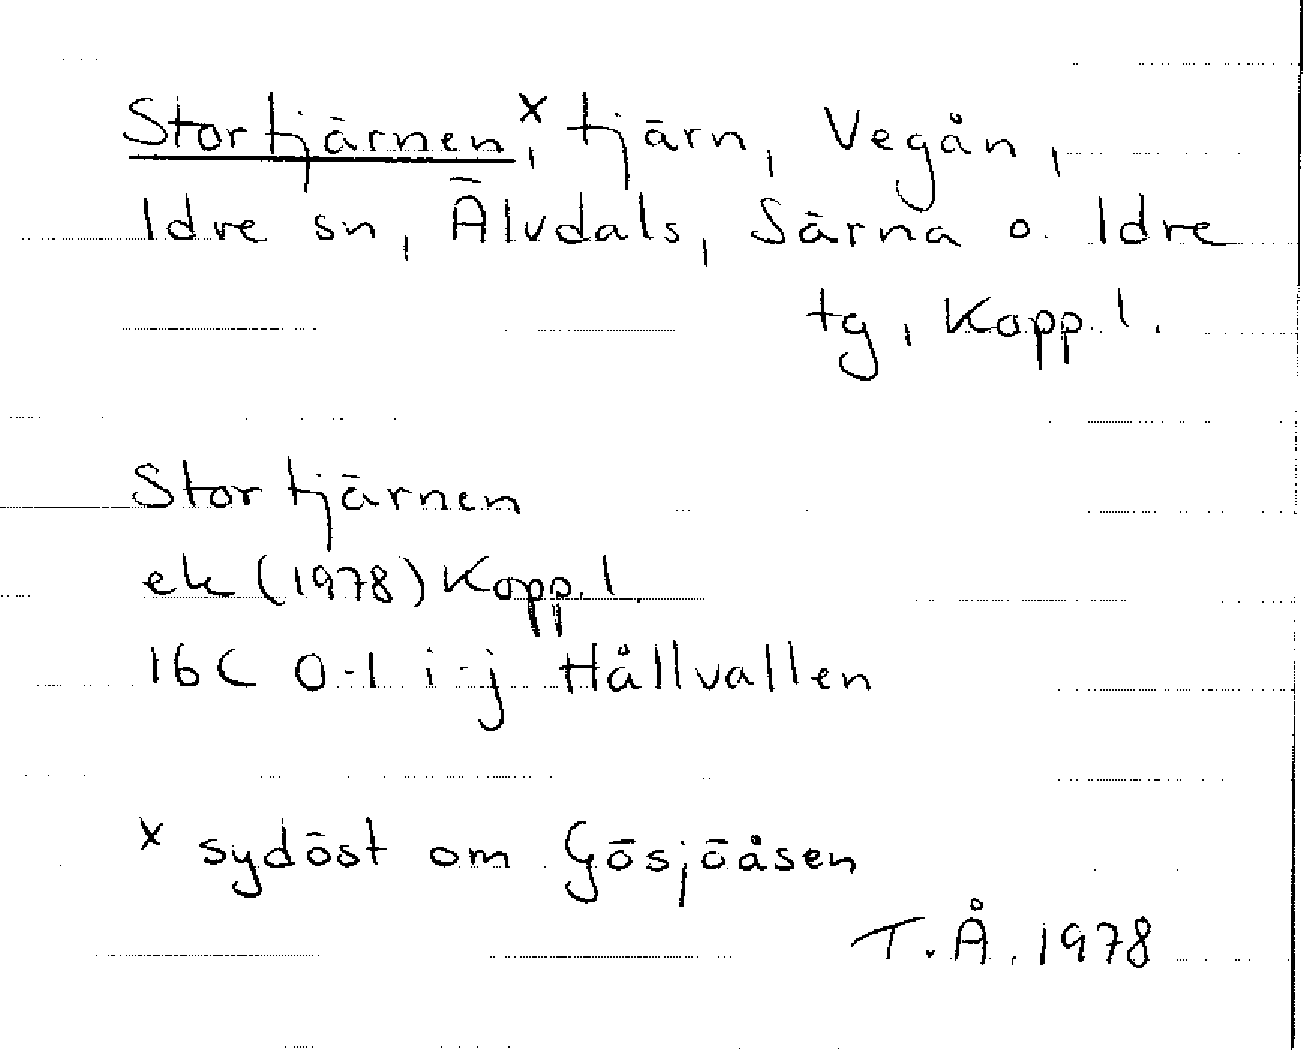 Stortjärnen,ˣ tjärn, Vegån,
Idre sn, Älvdals, Särna o. Idre
tg, Kopp. l.
Stortjärnen
ek (1978) Kopp. l.
16C 0-1 i-j Hållvallen
x sydöst om Gösjöåsen
T.Å. 1978